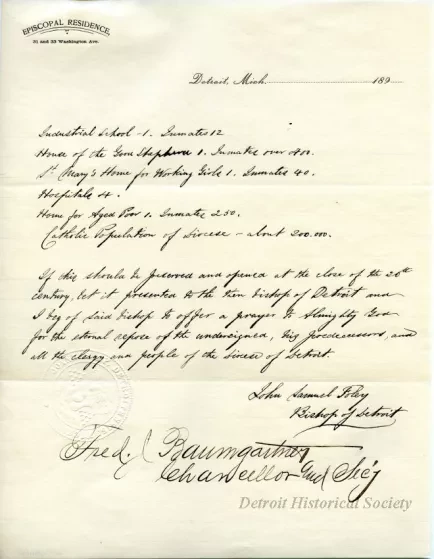 EPISCOPAL RESIDENCE,
31 and 33 Washington Ave.
Detroit, Mich. 189
Industrial School - 1. Inmates 12
House of the Good Shepherd 1. Inmates over 400.
St Mary's Home for Working Girls 1. Inmates 40.
Hospitals 4.
Home for Aged Poor 1. Inmates 250.
Catholic Population of Diocese - about 200.000.
If this should be preserved and opened at the close of the 20th
century, let it presented to the then Bishop of Detroit and
I beg of said Bishop to offer a prayer to Almighty God
for the eternal repose of the undersigned, his predecessors, and
all the clergy and people of the Diocese of Detroit.
John Samuel Foley
Bishop of Detroit
Fred. J Baumgartner
Chancellor and Sec'y
Detroit Historical Society